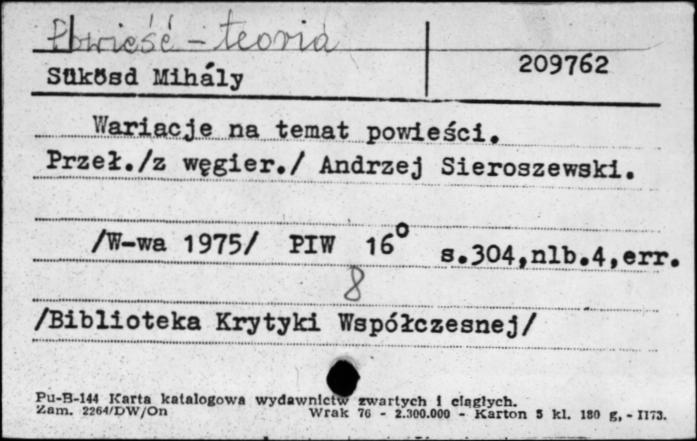 Powieść - teoria
Sükösd Mihály
209762
Wariacje na temat powieści.
Przeł./z węgier./ Andrzej Sieroszewski.
/W-wa 1975/ PIW 16° s.304,nlb.4,err.
8
/Biblioteka Krytyki Współczesnej/
Pu-B-144 Karta katalogowa wydawnictw zwartych i ciągłych.
Zam. 2264/DW/On Wrak 76 - 2.300.000 - Karton 5 kl. 180 g, - II73.